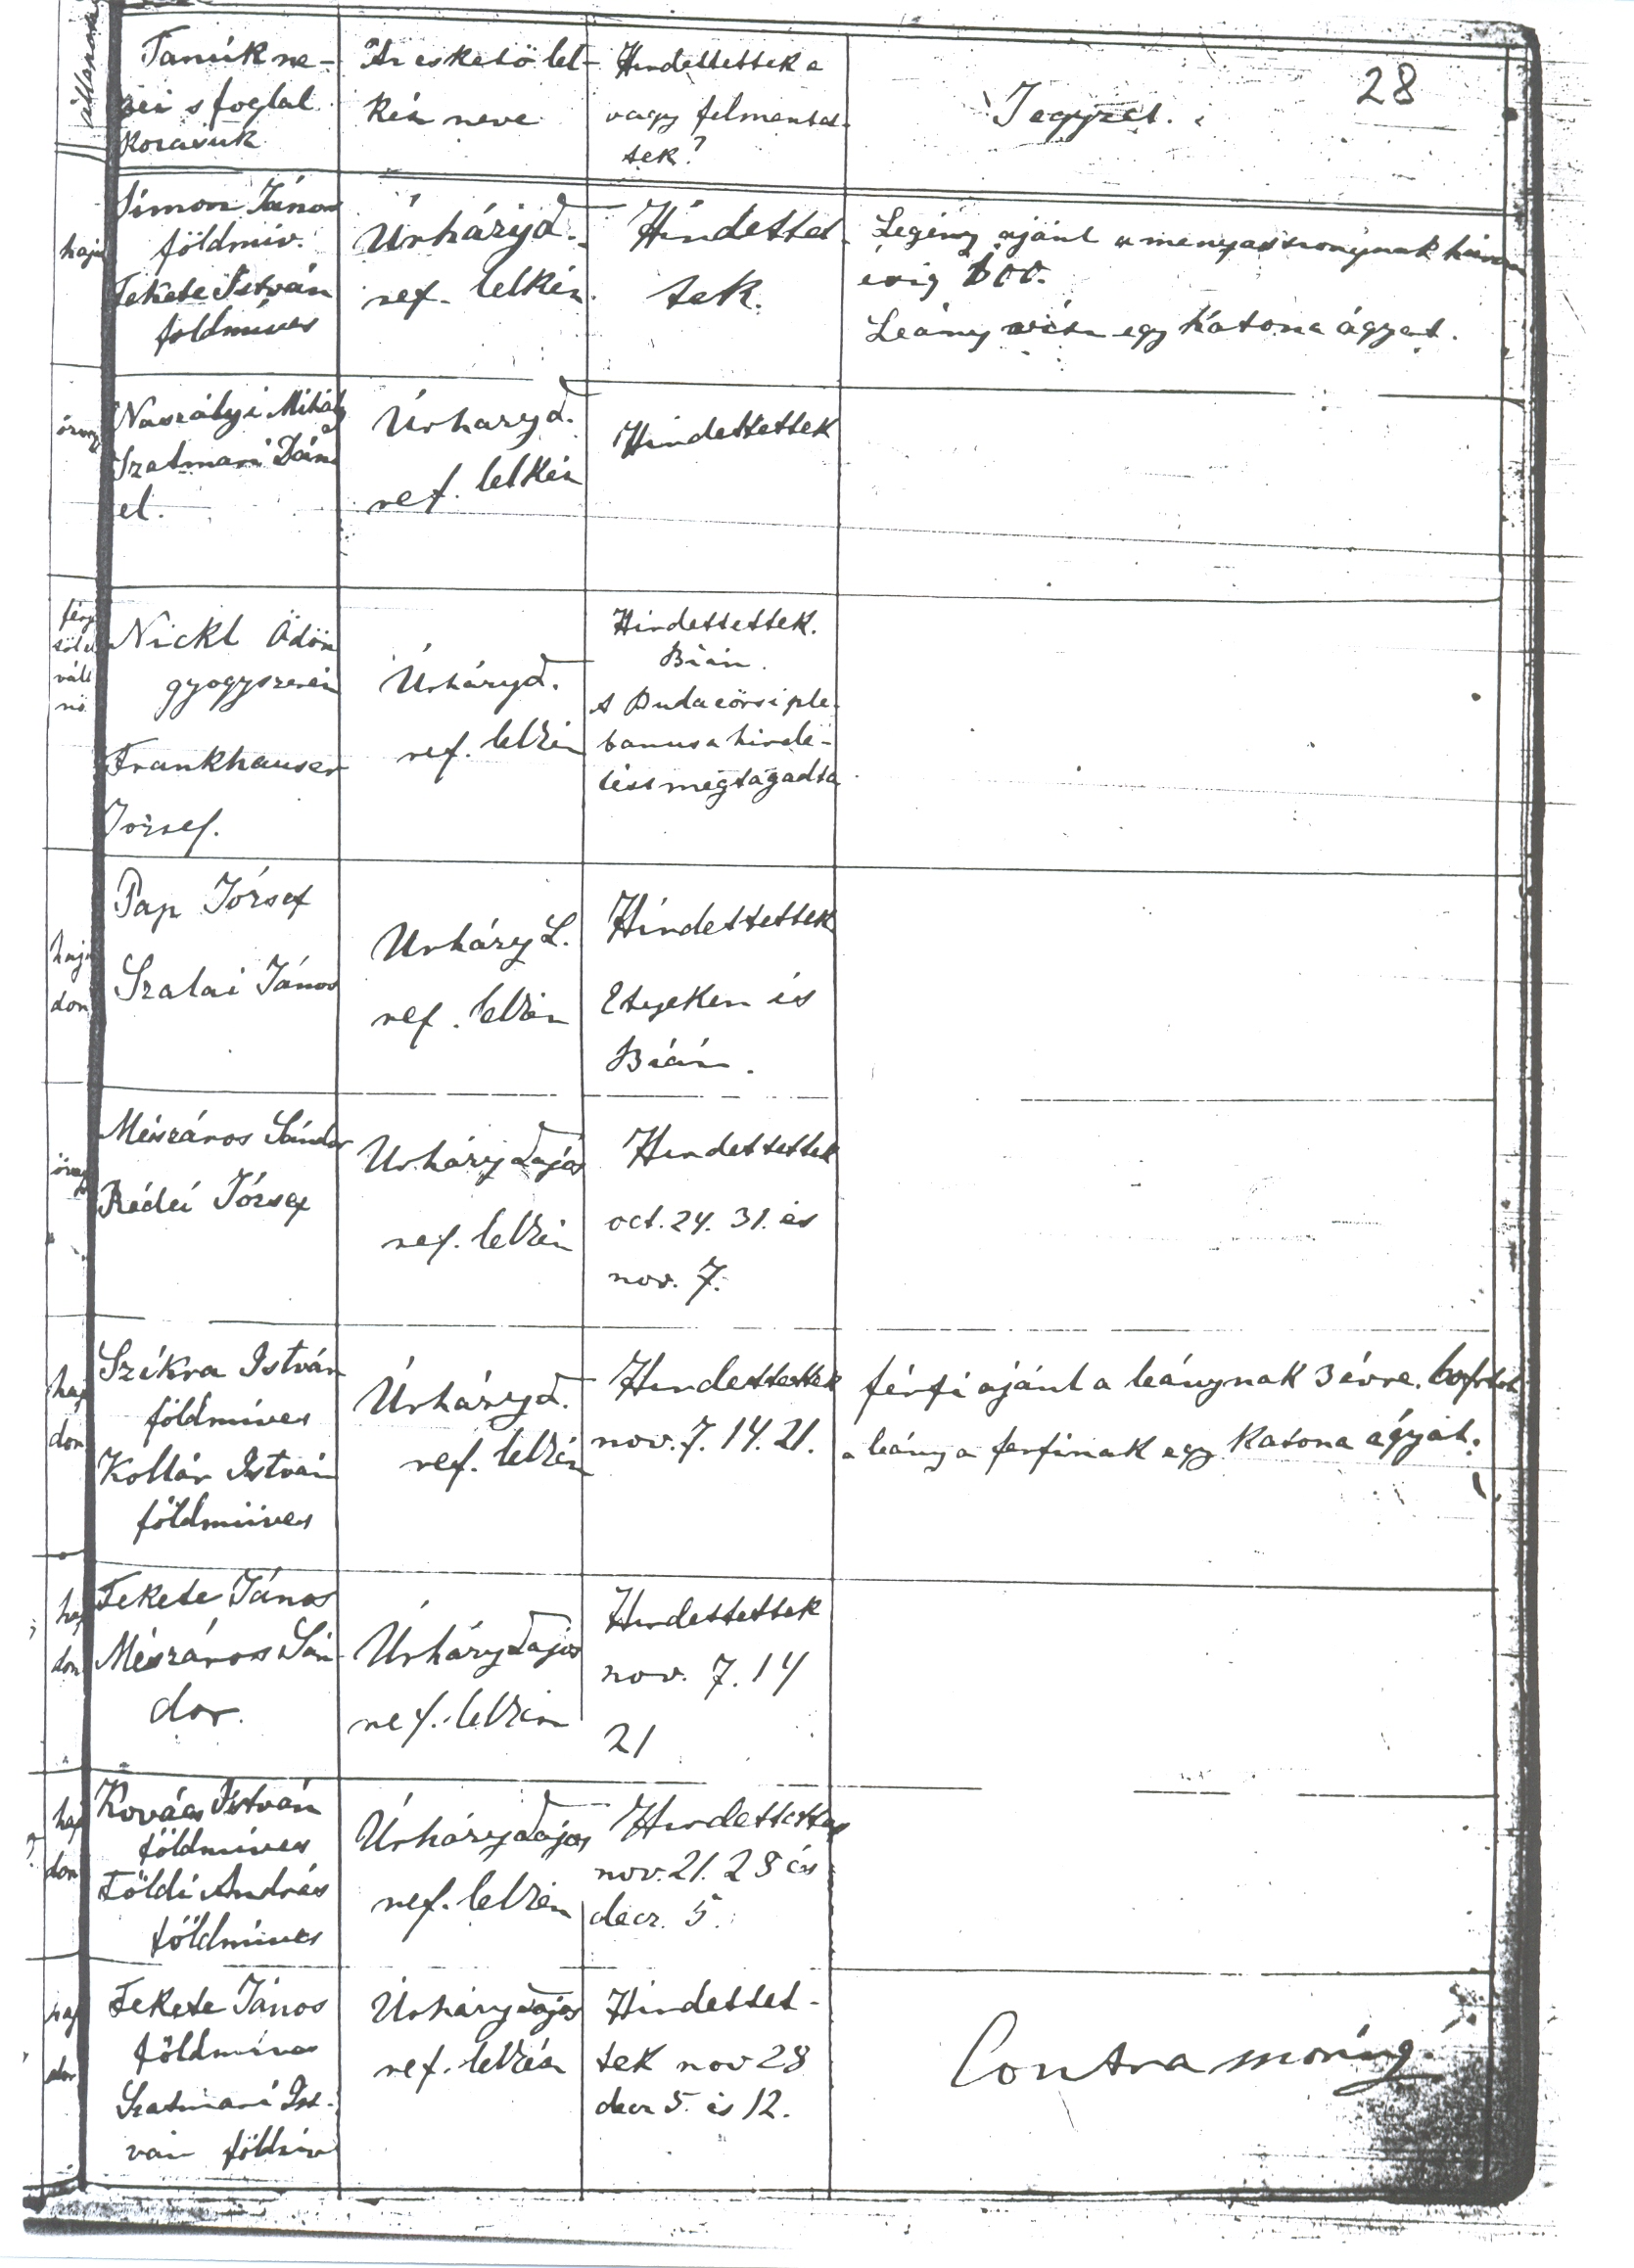 28
Tanúk ne-
vei s foglal
kozásuk
Az esketö lel-
kész neve
Hirdettettek e
vagy felmentet-
tek?
Jegyzet.
haja
Simon János
földmiv.
Fekete István
földmíves
Úrháry L.
ref. lelkész.
Hirdettet-
tek.
Legény ajánl a menyasszonynak három
évig
Leány visz egy katona ágyat.
Naszályi Mihály
Szatmari Dáni
el.
Úrhary L.
ref. lelkész
Hirdettettek
Nickl Ödön
gyogyszerész
Frankhauser
József.
Úrháry L.
ref. lelkész
Hirdettettek.
Bián.
A Budaeörsi ple-
banus a hirde-
tést megtagadta
haja
don
Pap József
Szalai János
Urháry L.
ref. lelkész
Hirdettettek
Etyeken és
Bián.
Mészáros Sándor
Rédei József
Urháry Lajos
ref. lelkész
Hirdettettek
oct. 24. 31. és
nov. 7.
haj
don
Szikra István
földmíves
Kollár István
földmüves
Úrháry L.
ref. lelkész
Hirdettettek
nov. 7. 14. 21.
férfi ajánl a leánynak 3 évre.
a leány a ferfinak egy katona ágyat.
haj
don
Fekete János
Mészáros Sán
dor.
Úrháry Lajos
ref. lelkész
Hirdettettek
nov. 7. 14
21
haj
don
Kovács István
földmíves
Földi András
földmíves
Úrháry Lajos
ref. lelkész
Hirdettettek
nov. 21. 28 és
decz. 5.
haj
don
Fekete János
földmíves
Szatmari Ist-
ván földmív
Úrháry Lajos
ref. lelkész
Hirdettet-
tek nov 28
decz 5. és 12.
Contra moring.